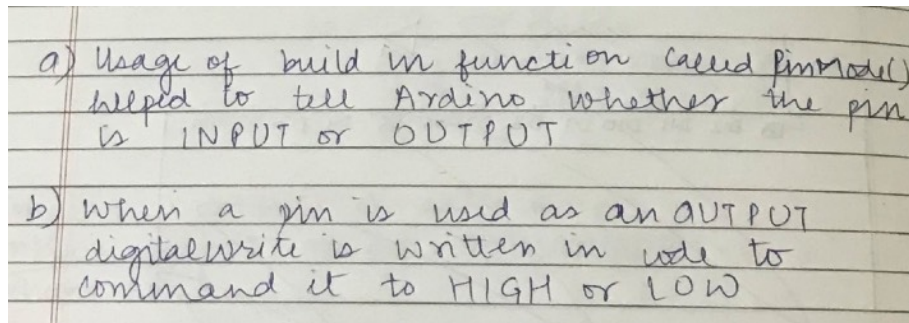 a) Usage of build in function called PinMode()
helped to tell Ardino whether the pin
is INPUT or OUTPUT
b) When a pin is used as an OUTPUT
digitalwrite is written in code to
command it to HIGH or LOW